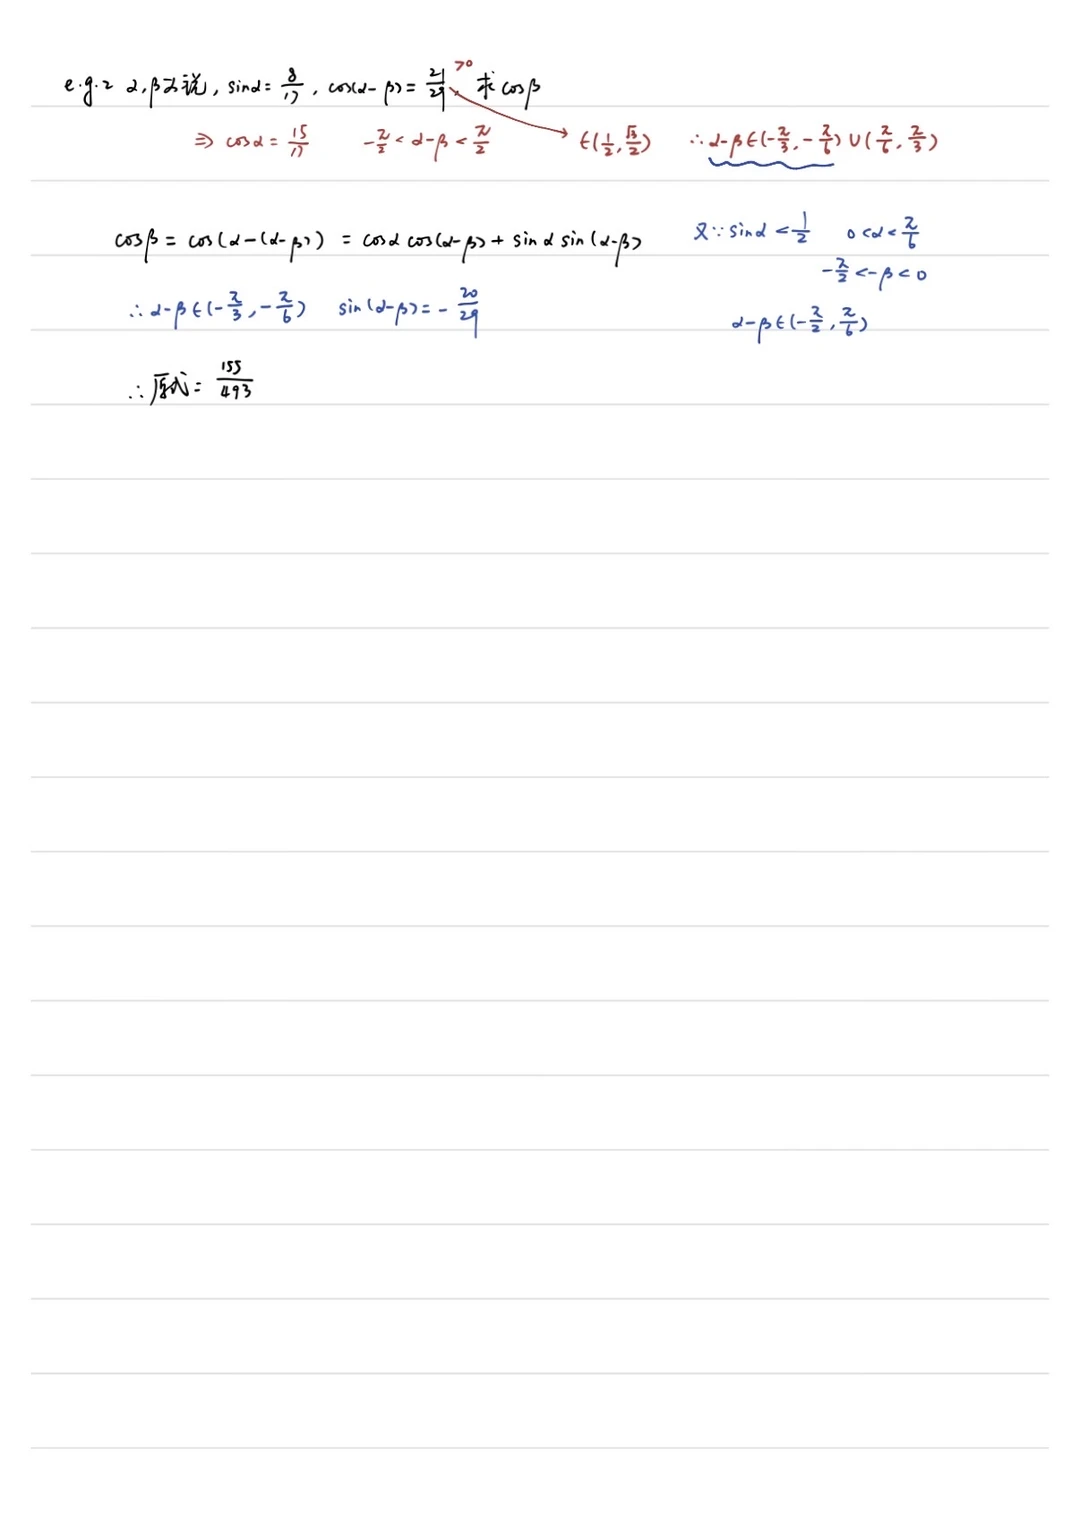 e.g.2 α,β为锐, sinα= 8/17, cos(α-β)= 21/29 >0 求cosβ
⇒ cosα= 15/17 -π/2 < α-β < π/2 ∈(1/2, √3/2) ∴ α-β∈(-π/3, -π/6)∪(π/6, π/3)
cosβ = cos(α-(α-β)) = cosα cos(α-β)+ sinα sin(α-β) 又∵ sinα < 1/2 0<α<π/6
-π/2 <-β<0
∴ α-β∈(-π/3, -π/6) sin(α-β)= - 20/29 α-β∈(-π/2, π/6)
∴原式= 155/493